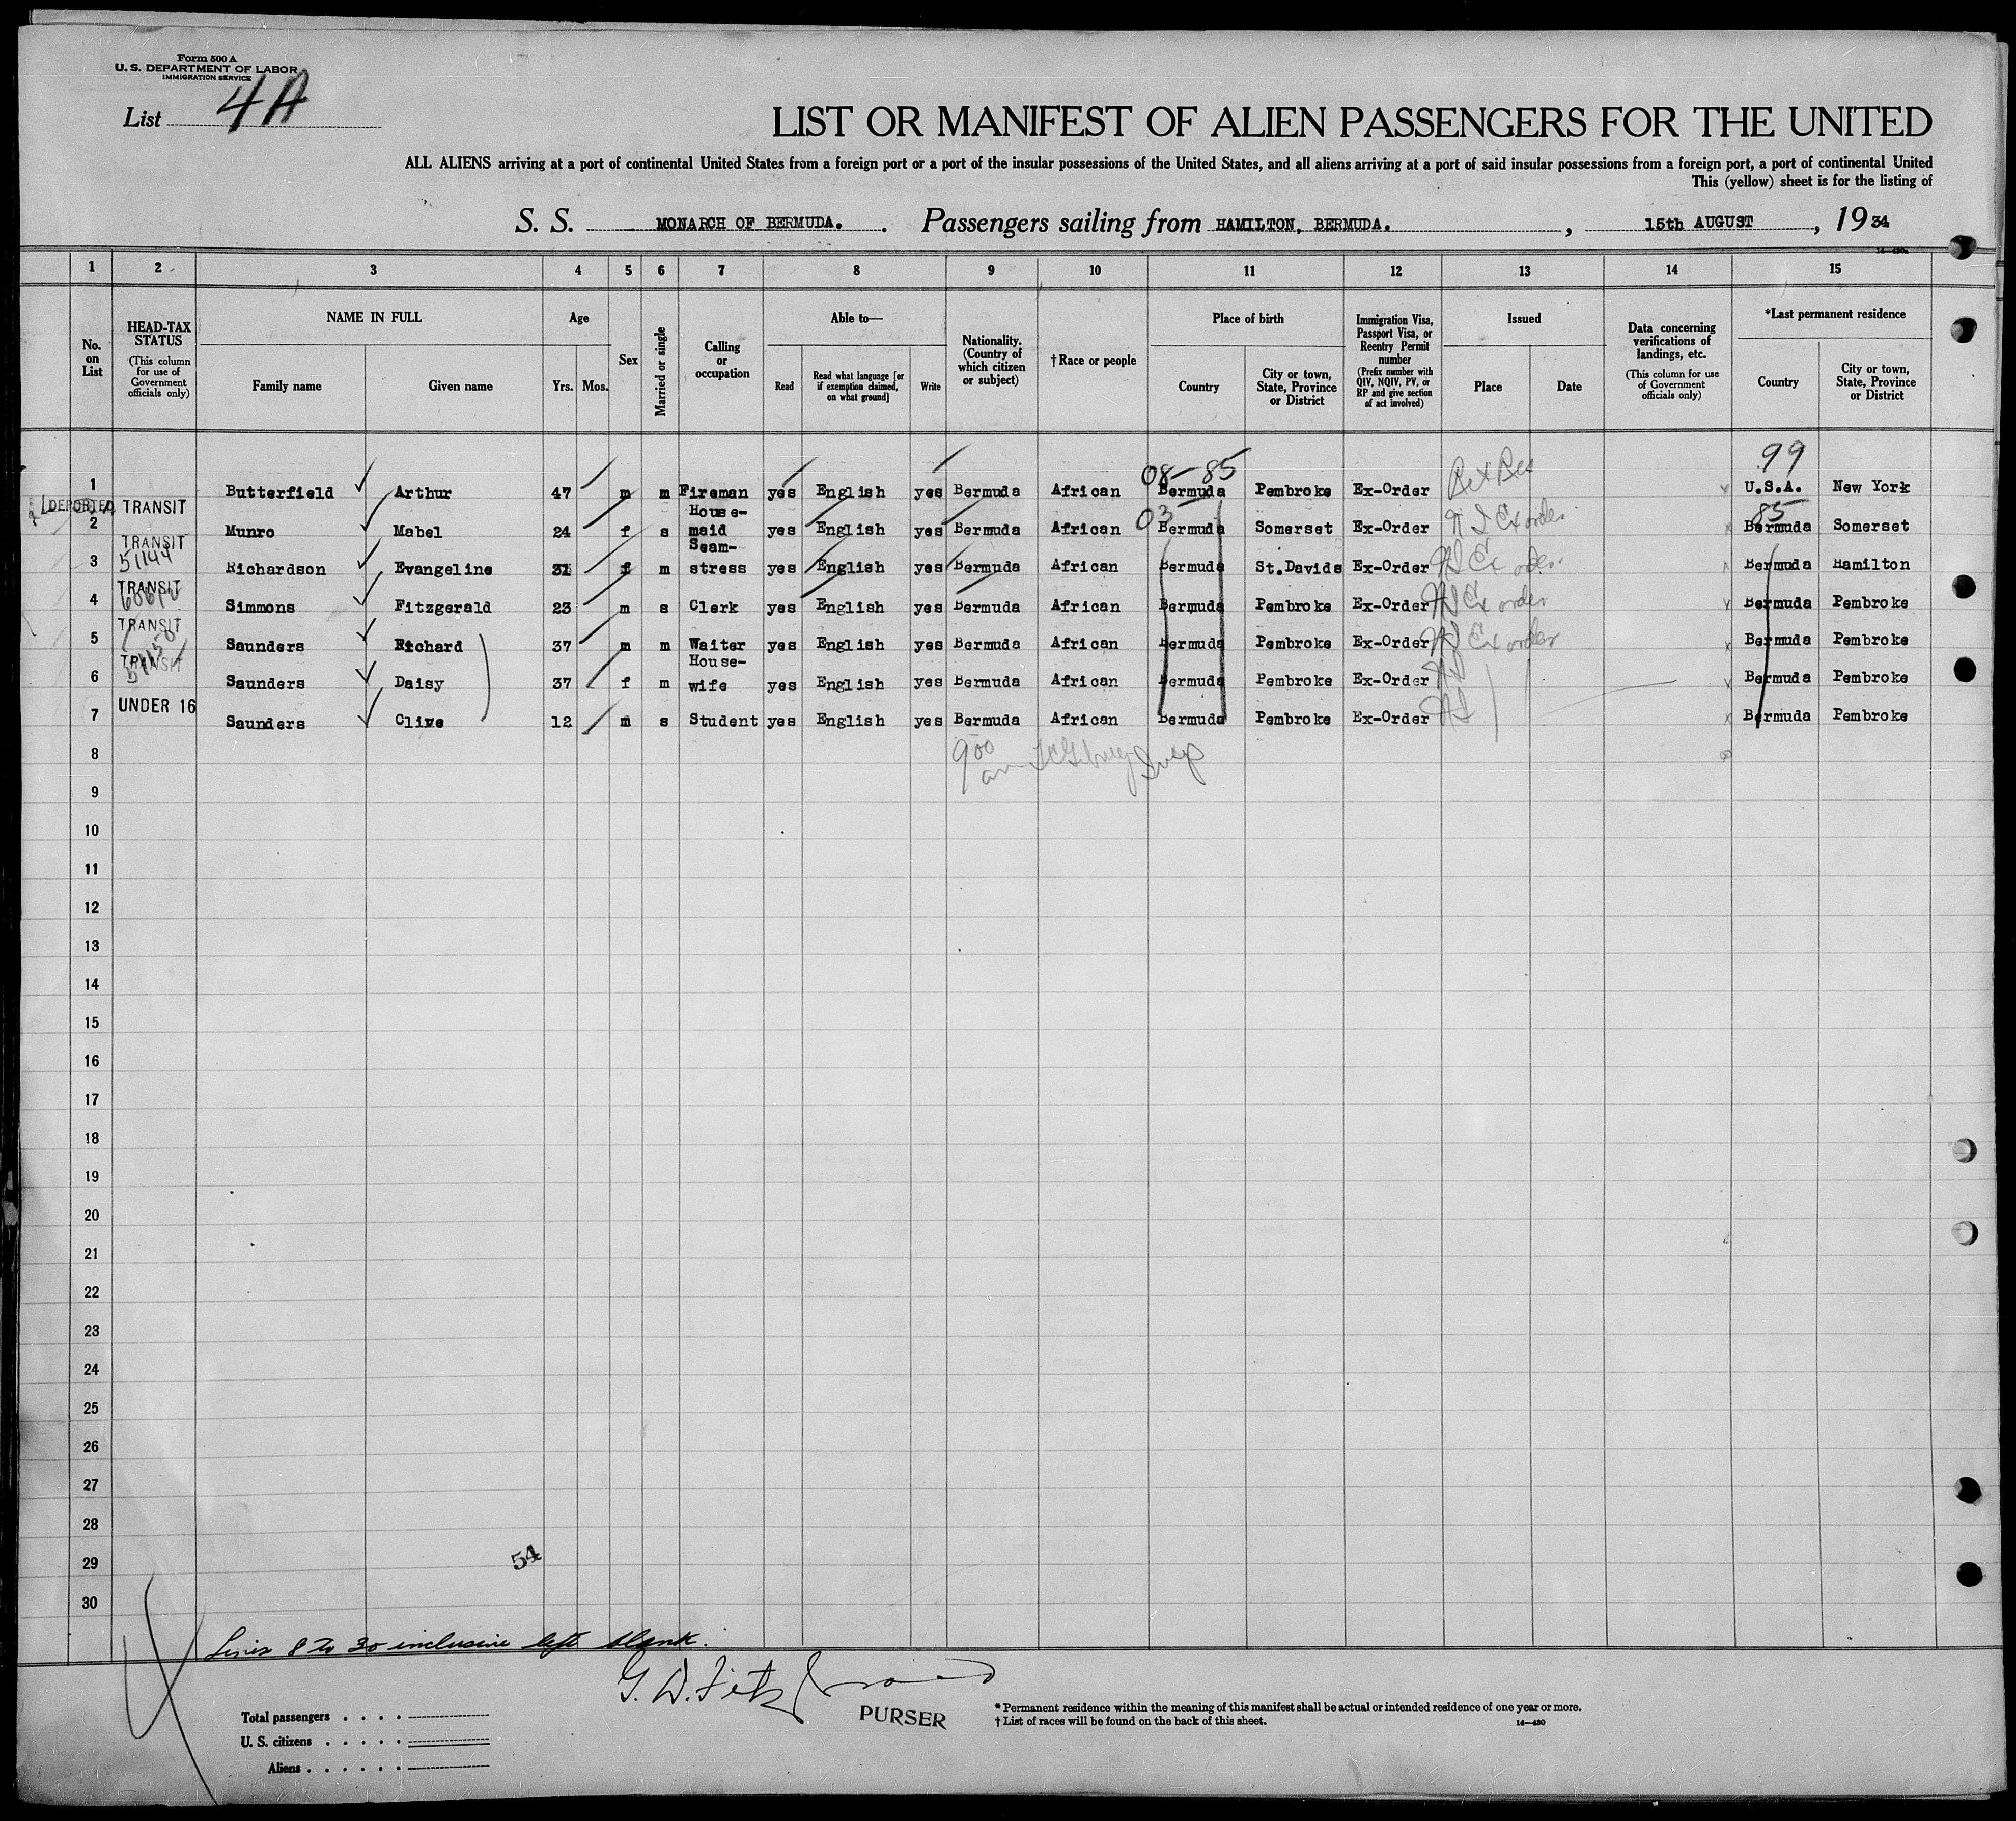 Form 500 A
U. S. DEPARTMENT OF LABOR
IMMIGRATION SERVICE
List 4A
LIST OR MANIFEST OF ALIEN PASSENGERS FOR THE UNITED
ALL ALIENS arriving at a port of continental United States from a foreign port or a port of the insular possessions of the United States, and all aliens arriving at a port of said insular possessions from a foreign port, a port of continental United
This (yellow) sheet is for the listing of
S. S. MONARCH OF BERMUDA. Passengers sailing from HAMILTON, BERMUDA. , 15th AUGUST , 19 34
1 2 3 4 5 6 7 8 9 10 11 12 13 14 15
No. on List
HEAD-TAX STATUS (This column for use of Government officials only)
NAME IN FULL
Family name
Given name
Age
Yrs. Mos.
Sex
Married or single
Calling or occupation
Able to—
Read
Read what language [or if exemption claimed, on what ground]
Write
Nationality. (Country of which citizen or subject)
†Race or people
Place of birth
Country
City or town, State, Province or District
Immigration Visa, Passport Visa, or Reentry Permit number (Prefix number with QIV, NQIV, PV, or RP and give section of act involved)
Issued
Place
Date
Data concerning verifications of landings, etc. (This column for use of Government officials only)
*Last permanent residence
Country
City or town, State, Province or District
08-85 99
1 Butterfield Arthur 47 m m Fireman yes English yes Bermuda African Bermuda Pembroke Ex-Order U.S.A. New York
DEPORTED TRANSIT
03 85
2 Munro Mabel 24 f s House-maid yes English yes Bermuda African Bermuda Somerset Ex-Order Ex order Bermuda Somerset
TRANSIT
51144
3 Richardson Evangeline 31 f m Seam-stress yes English yes Bermuda African Bermuda St.Davids Ex-Order Bermuda Hamilton
TRANSIT
4 Simmons Fitzgerald 23 m s Clerk yes English yes Bermuda African Bermuda Pembroke Ex-Order Ex order Bermuda Pembroke
TRANSIT
5 Saunders Richard 37 m m Waiter yes English yes Bermuda African Bermuda Pembroke Ex-Order Ex order Bermuda Pembroke
TRANSIT
6 Saunders Daisy 37 f m House-wife yes English yes Bermuda African Bermuda Pembroke Ex-Order Bermuda Pembroke
UNDER 16
7 Saunders Clive 12 m s Student yes English yes Bermuda African Bermuda Pembroke Ex-Order Bermuda Pembroke
8 900 am Insp
9
10
11
12
13
14
15
16
17
18
19
20
21
22
23
24
25
26
27
28
29 54
30
Lines 8 to 30 inclusive left blank.
G. D. Fitz
PURSER
Total passengers
U. S. citizens
Aliens
* Permanent residence within the meaning of this manifest shall be actual or intended residence of one year or more.
† List of races will be found on the back of this sheet.
14—430